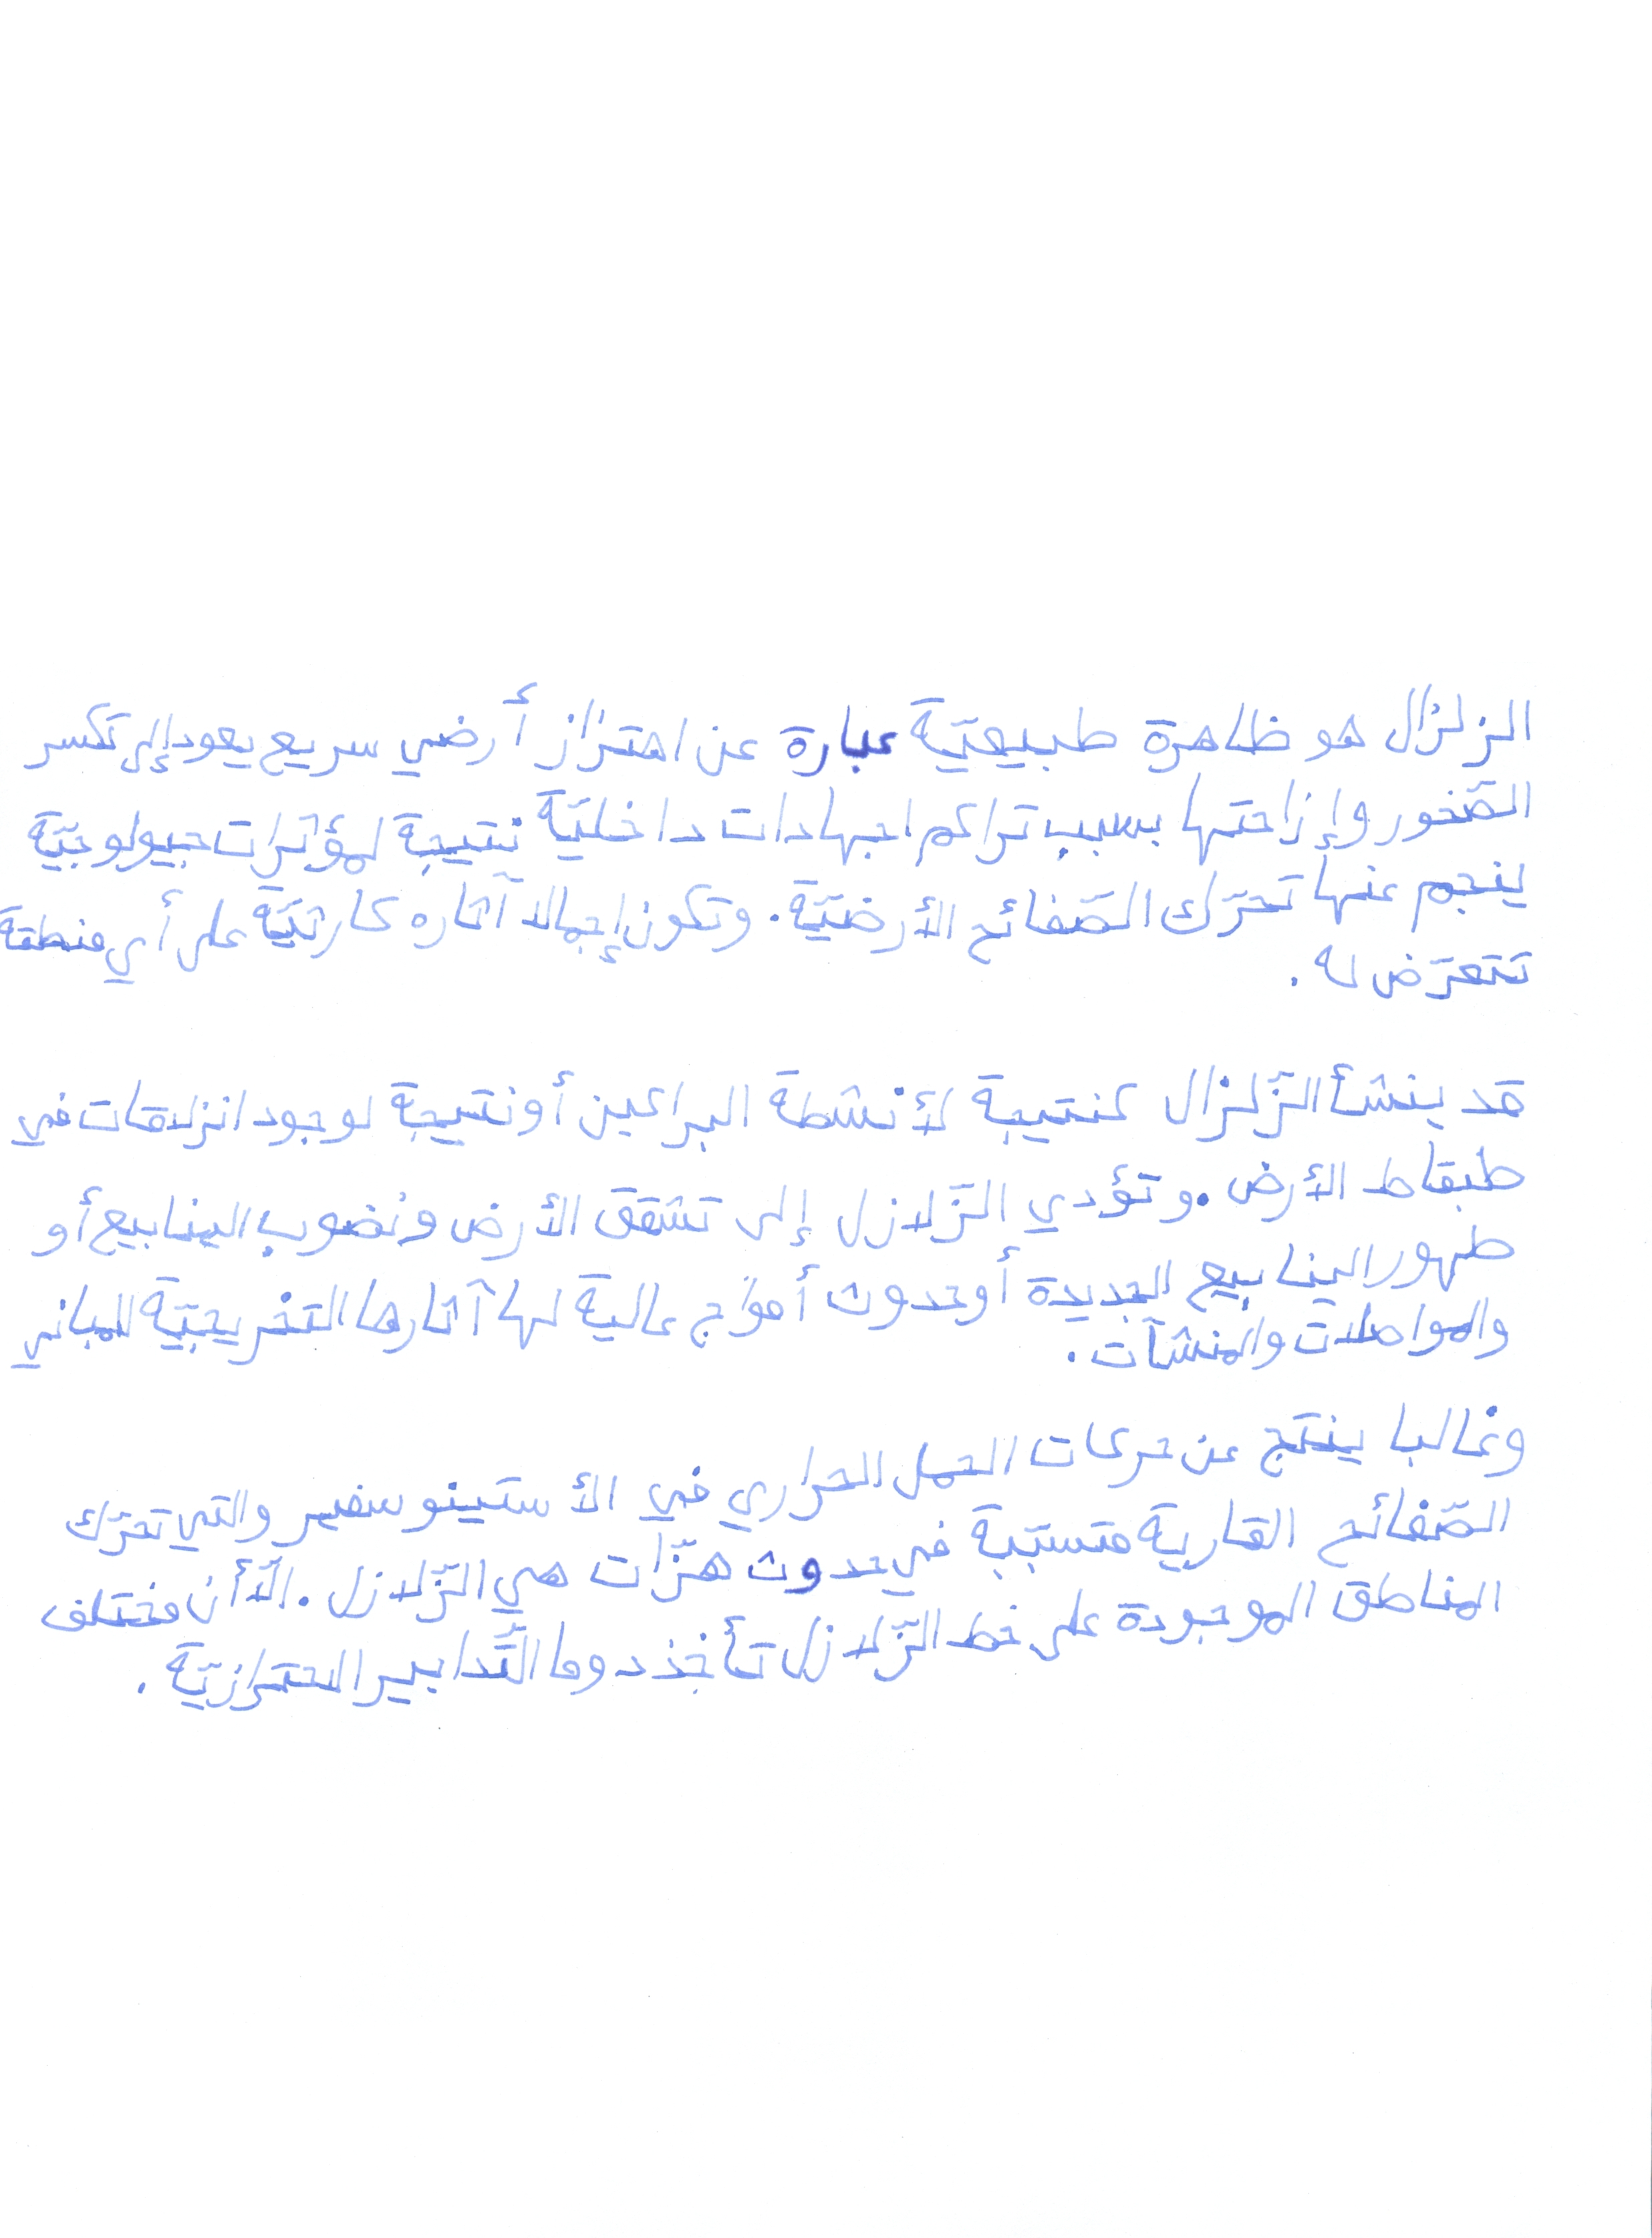 الزلزال هو ظاهرة طبيعيّة عبارة عن اهتزاز أرضي سريع يعود إلى تكسر
الصّخور وإزاحتها بسبب تراكم اجهادات داخليّة نتيجة لمؤثرات جيولوجيّة
ينجم عنها تحرّك الصّفائح الأرضيّة. وتكون إجمالا آثاره كارثيّة على أي منطقة
تتعرّض له.
قد ينشأ الزّلزال كنتيجة لأنشطة البراكين أو نتيجة لوجود انزلاقات في
طبقاط الأرض. وتؤدي الزّلازل إلى تشقق الأرض ونضوب الينابيع أو
ظهور الينابيع الجديدة أو حدوث أمواج عالية لها آثارها التخريجيّة للمباني
والمواصلات والمنشآت.
وغالبا ينتج عن حركات الحمل الحراري في الأستينوسفير والتي تحرّك
الصّفائح القارية متسبّبة في حدوث هزّات هي الزّلازل. الّا أن مختلف
المناطق الموجودة على خط الزّلازل تأخذ دوما التّدابير الاحترازيّة.